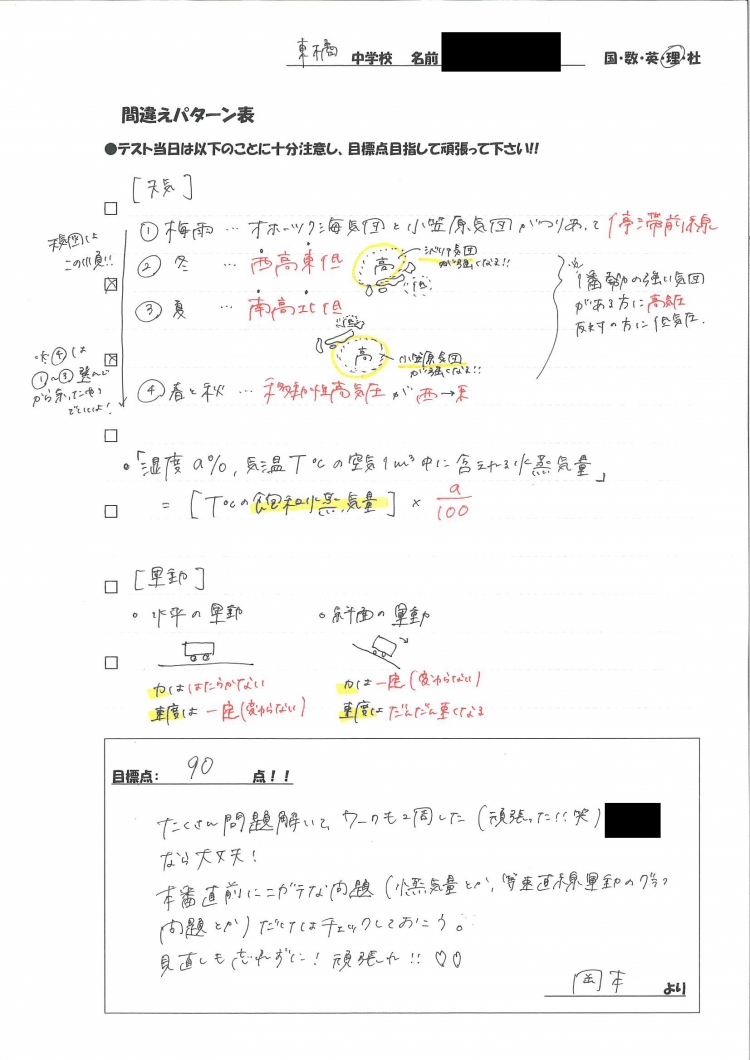 東橘 中学校 名前 国・数・英・理・社
間違えパターン表
●テスト当日は以下のことに十分注意し、目標点目指して頑張って下さい!!
[天気]
① 梅雨 … オホーツク海気団と小笠原気団がつりあって停滞前線
天気図は
この4つ!!
② 冬 … 西高東低
高
シベリア気団
が強くなる!!
低
③ 夏 … 南高北低
低
高
小笠原気団
が強くなる!!
1番勢力の強い気団
がある方に高気圧
反対の方に低気圧.
④は
①〜③選んで
から余ったやつ
でいいよ!
④ 春と秋 … 移動性高気圧が西→東
「湿度a%, 気温T℃の空気1m³中に含まれる水蒸気量」
= [T℃の飽和水蒸気量] × a/100
[運動]
水平の運動 斜面の運動
力ははたらかない 力は一定(変わらない)
速度は一定(変わらない) 速度はだんだん速くなる
目標点: 90 点!!
たくさん問題解いて、ワークも2周した(頑張った!!笑)
なら大丈夫!
本番直前にニガテな問題(水蒸気量とか、等速直線運動のグラフ
問題とか)だけはチェックしておこう。
見直しも忘れずに! 頑張れ!! ♡♡
岡本 より